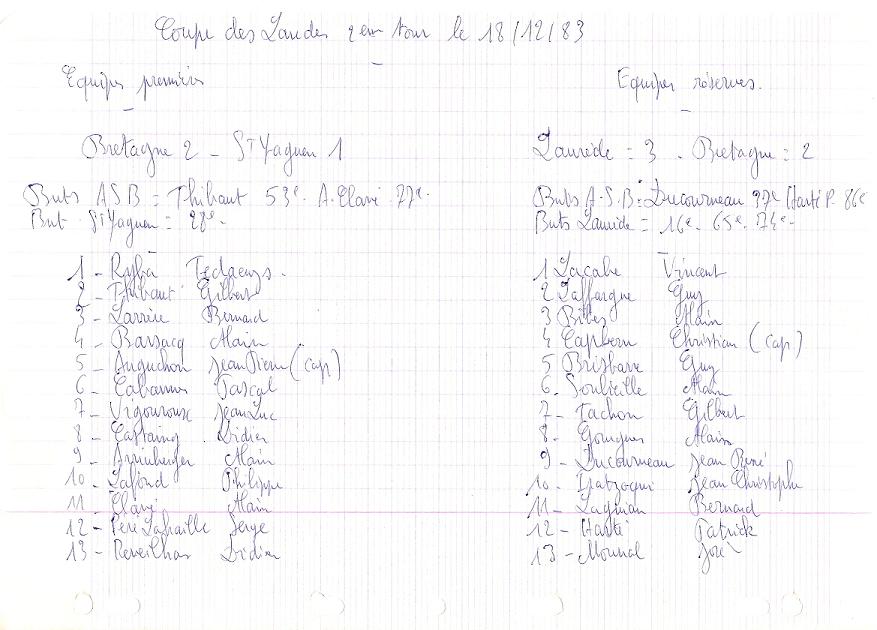 Coupe des Landes 2em tour le 18/12/83
Equipes premières
Bretagne 2 - St Yaguen 1
Buts A S B = Thibaut 53e. A. Clavé 77e.
But St Yaguen = 28e.
1 - Ryba
2 - Thibaut Gilbert
3 - Larrère Bernard
4 - Barsacq Alain
5 - Jean Pierre (cap)
6 - Cabannes Pascal
7 - Vigouroux Jean Luc
8 - Castaing Didier
9 - Alain
10 - Lafond Philippe
11 - Clavé Alain
12 - Péré Lahaille Serge
13 - Reveilhas Didier
Equipes réserves.
Laurède = 3 - Bretagne = 2
Buts A.S.B = Ducourneau 37e Harté P. 86e
Buts Laurède = 16e - 65e. 74e-
1 Lacabe Vincent
2 Laffargue Guy
3 Bibes Alain
4 Capbern Christian (cap)
5 Brisbare Guy
6 - Soubieille Alain
7 - Tachon Gilbert
8 - Gourgues Alain
9 - Ducourneau Jean René
10 - Jean Christophe
11 - Laguian Bernard
12 - Harté Patrick
13 - José